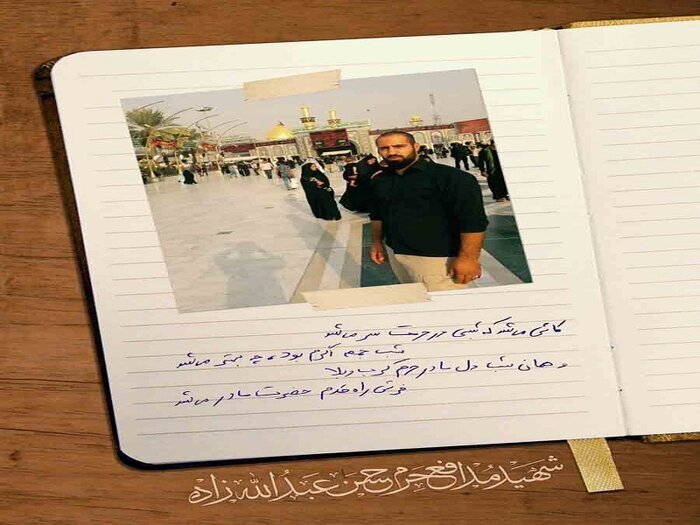 کاش می‌شد که شبی در حرمت سر می‌شد
شب جمعه اگرم بود چه بهتر می‌شد
و همان شب دل ما در حرم کرب و بلا
فرش راه قدم حضرت مادر می‌شد
شهید مدافع حرم حسن عبدالله زاده